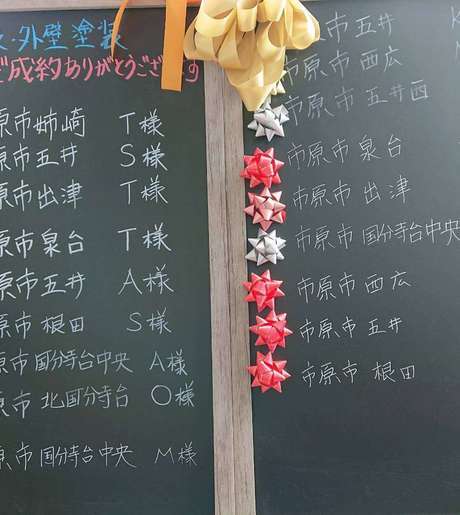 ・外壁塗装
ご成約ありがとうござます
原市姉崎 T様
原市五井 S様
原市出津 T様
原市泉台 T様
原市五井 A様
原市根田 S様
原市国分寺台中央 A様
原市北国分寺台 O様
原市国分寺台中央 M様
市原市五井
市原市西広
市原市五井西
市原市泉台
市原市出津
市原市国分寺台中央
市原市西広
市原市五井
市原市根田